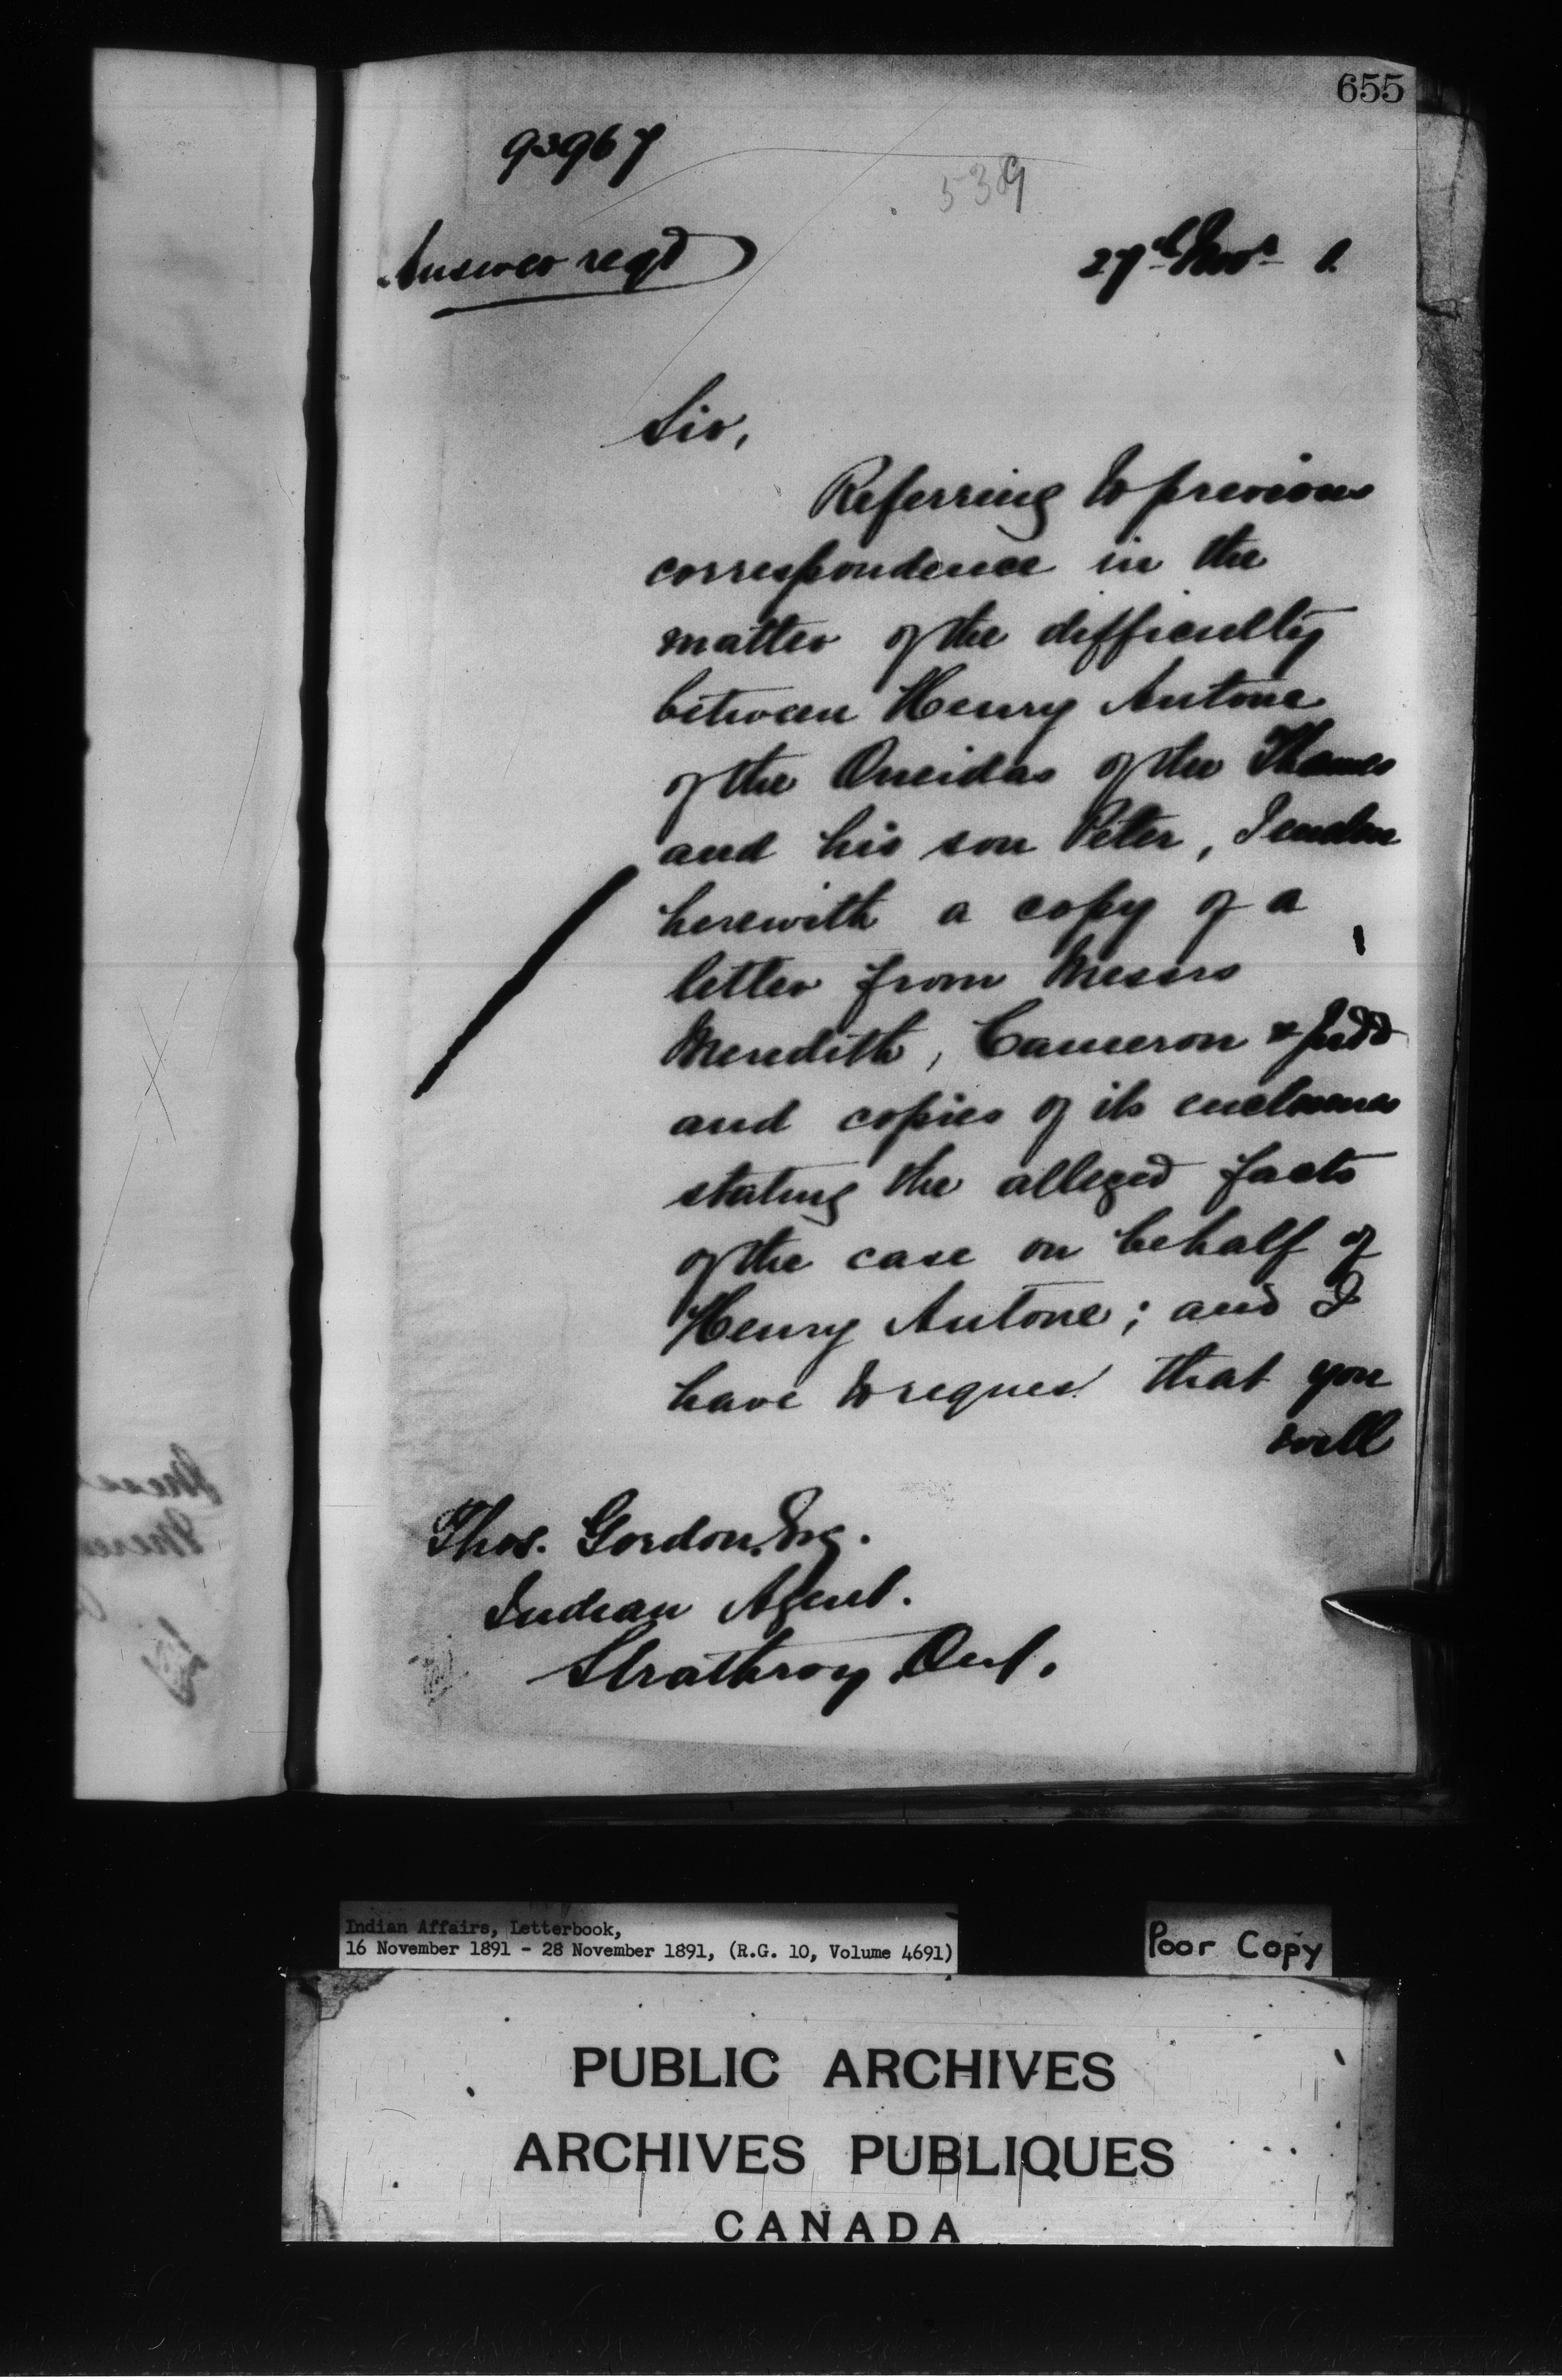 655
93967
539
Answer reqd
27th Novr 1.
Sir,
Referring to previous
correspondence in the
matter of the difficulty
between Henry Antone
of the Oneidas of the Thames
and his son Peter, I enclose
herewith a copy of a
letter from Messrs
Meredith, Cameron & Judd
and copies of its enclosures
stating the alleged facts
of the case on behalf of
Henry Antone; and I
have to request that you
will
Thos. Gordon, Esq.
Indian Agent.
Strathroy, Ont.
Indian Affairs, Letterbook,
16 November 1891 - 28 November 1891, (R.G. 10, Volume 4691)
Poor Copy
PUBLIC ARCHIVES
ARCHIVES PUBLIQUES
CANADA